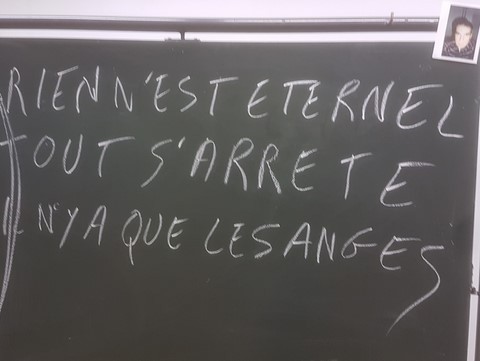 RIEN N'EST ETERNEL
TOUT S'ARRETE
IL N'Y A QUE LES ANGES